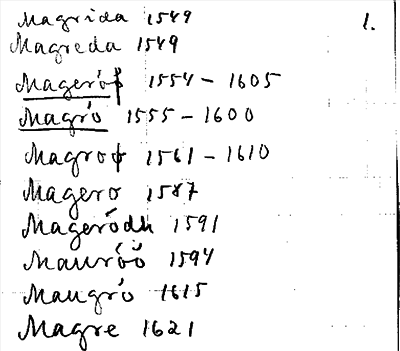 Magrida 1549 1.
Magreda 1549
Mageróf 1554 - 1605
Magró 1555 - 1600
Magrof 1561 - 1610
Magero 1587
Mageródh 1591
Mauróö 1594
Maugró 1615
Magre 1621